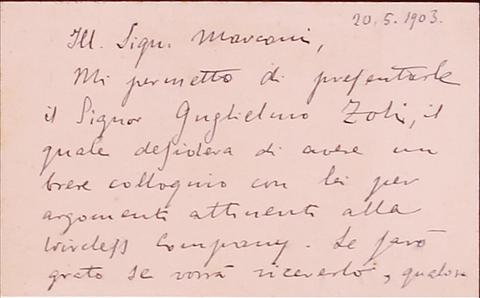 20.5.1903.
Ill. Sign. Marconi,
Mi permetto di presentarle
il Signor Guglielmo Zoli, il
quale desidera di avere un
breve colloquio con lei per
argomenti attinenti alla
Wireless Company. Le sarò
grato se vorrà riceverlo, qualora